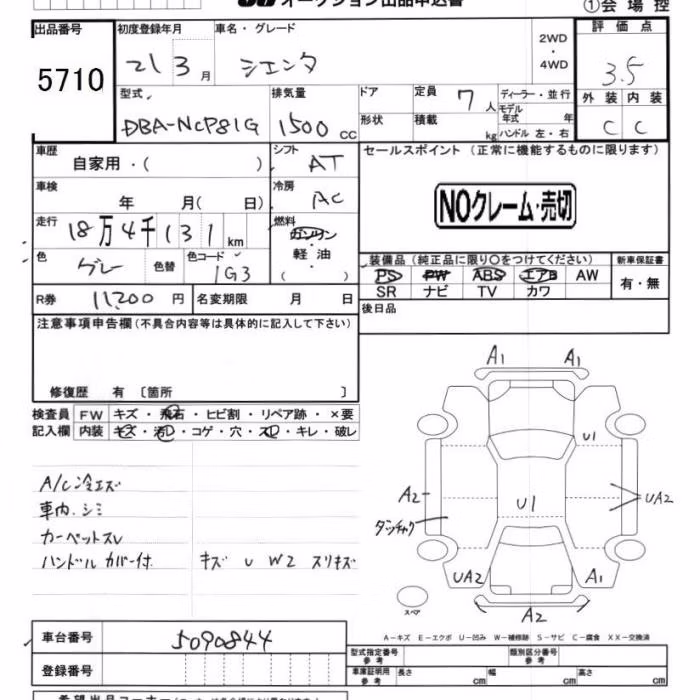 オークション出品申込書
①会場控
出品番号 5710
初度登録年月 21 3月
車名・グレード シエンタ
2WD・4WD
評価点 3.5
外装 内装
C C
型式 DBA-NCP81G
排気量 1500cc
ドア
定員 7人
形状
積載 kg
ディーラー・並行
モデル年式 年
ハンドル 左・右
車歴 自家用・( )
シフト AT
車検 年 月( 日)
冷房 AC
走行 18万4千131km
燃料 ガソリン・軽油・( )
色 グレー
色替
色コード 1G3
R券 11200円
名変期限 月 日
セールスポイント (正常に機能するものに限ります)
NOクレーム・売切
装備品(純正品に限り○をつけてください)
PS PW ABS エアB AW
SR ナビ TV カワ
新車保証書
有・無
後日品
注意事項申告欄(不具合内容等は具体的に記入して下さい)
修復歴 有 〔箇所 〕
検査員記入欄
FW キズ・飛石・ヒビ割・リペア跡・×要
内装 キズ・汚レ・コゲ・穴・スレ・キレ・破レ
A/C冷エズ
車内シミ
カーペットスレ
ハンドルカバー付 キズ U W2 スリキズ
A1 A1
U1
A2
U1
UA2
UA2 A1
A2
スペア
A-キズ E-エクボ U-凹み W-補修跡 S-サビ C-腐食 XX-交換済
車台番号 5090844
登録番号
型式指定番号 参考
類別区分番号 参考
車庫証明用 参考 長さ cm 幅 cm 高さ cm
希望出品コーナー